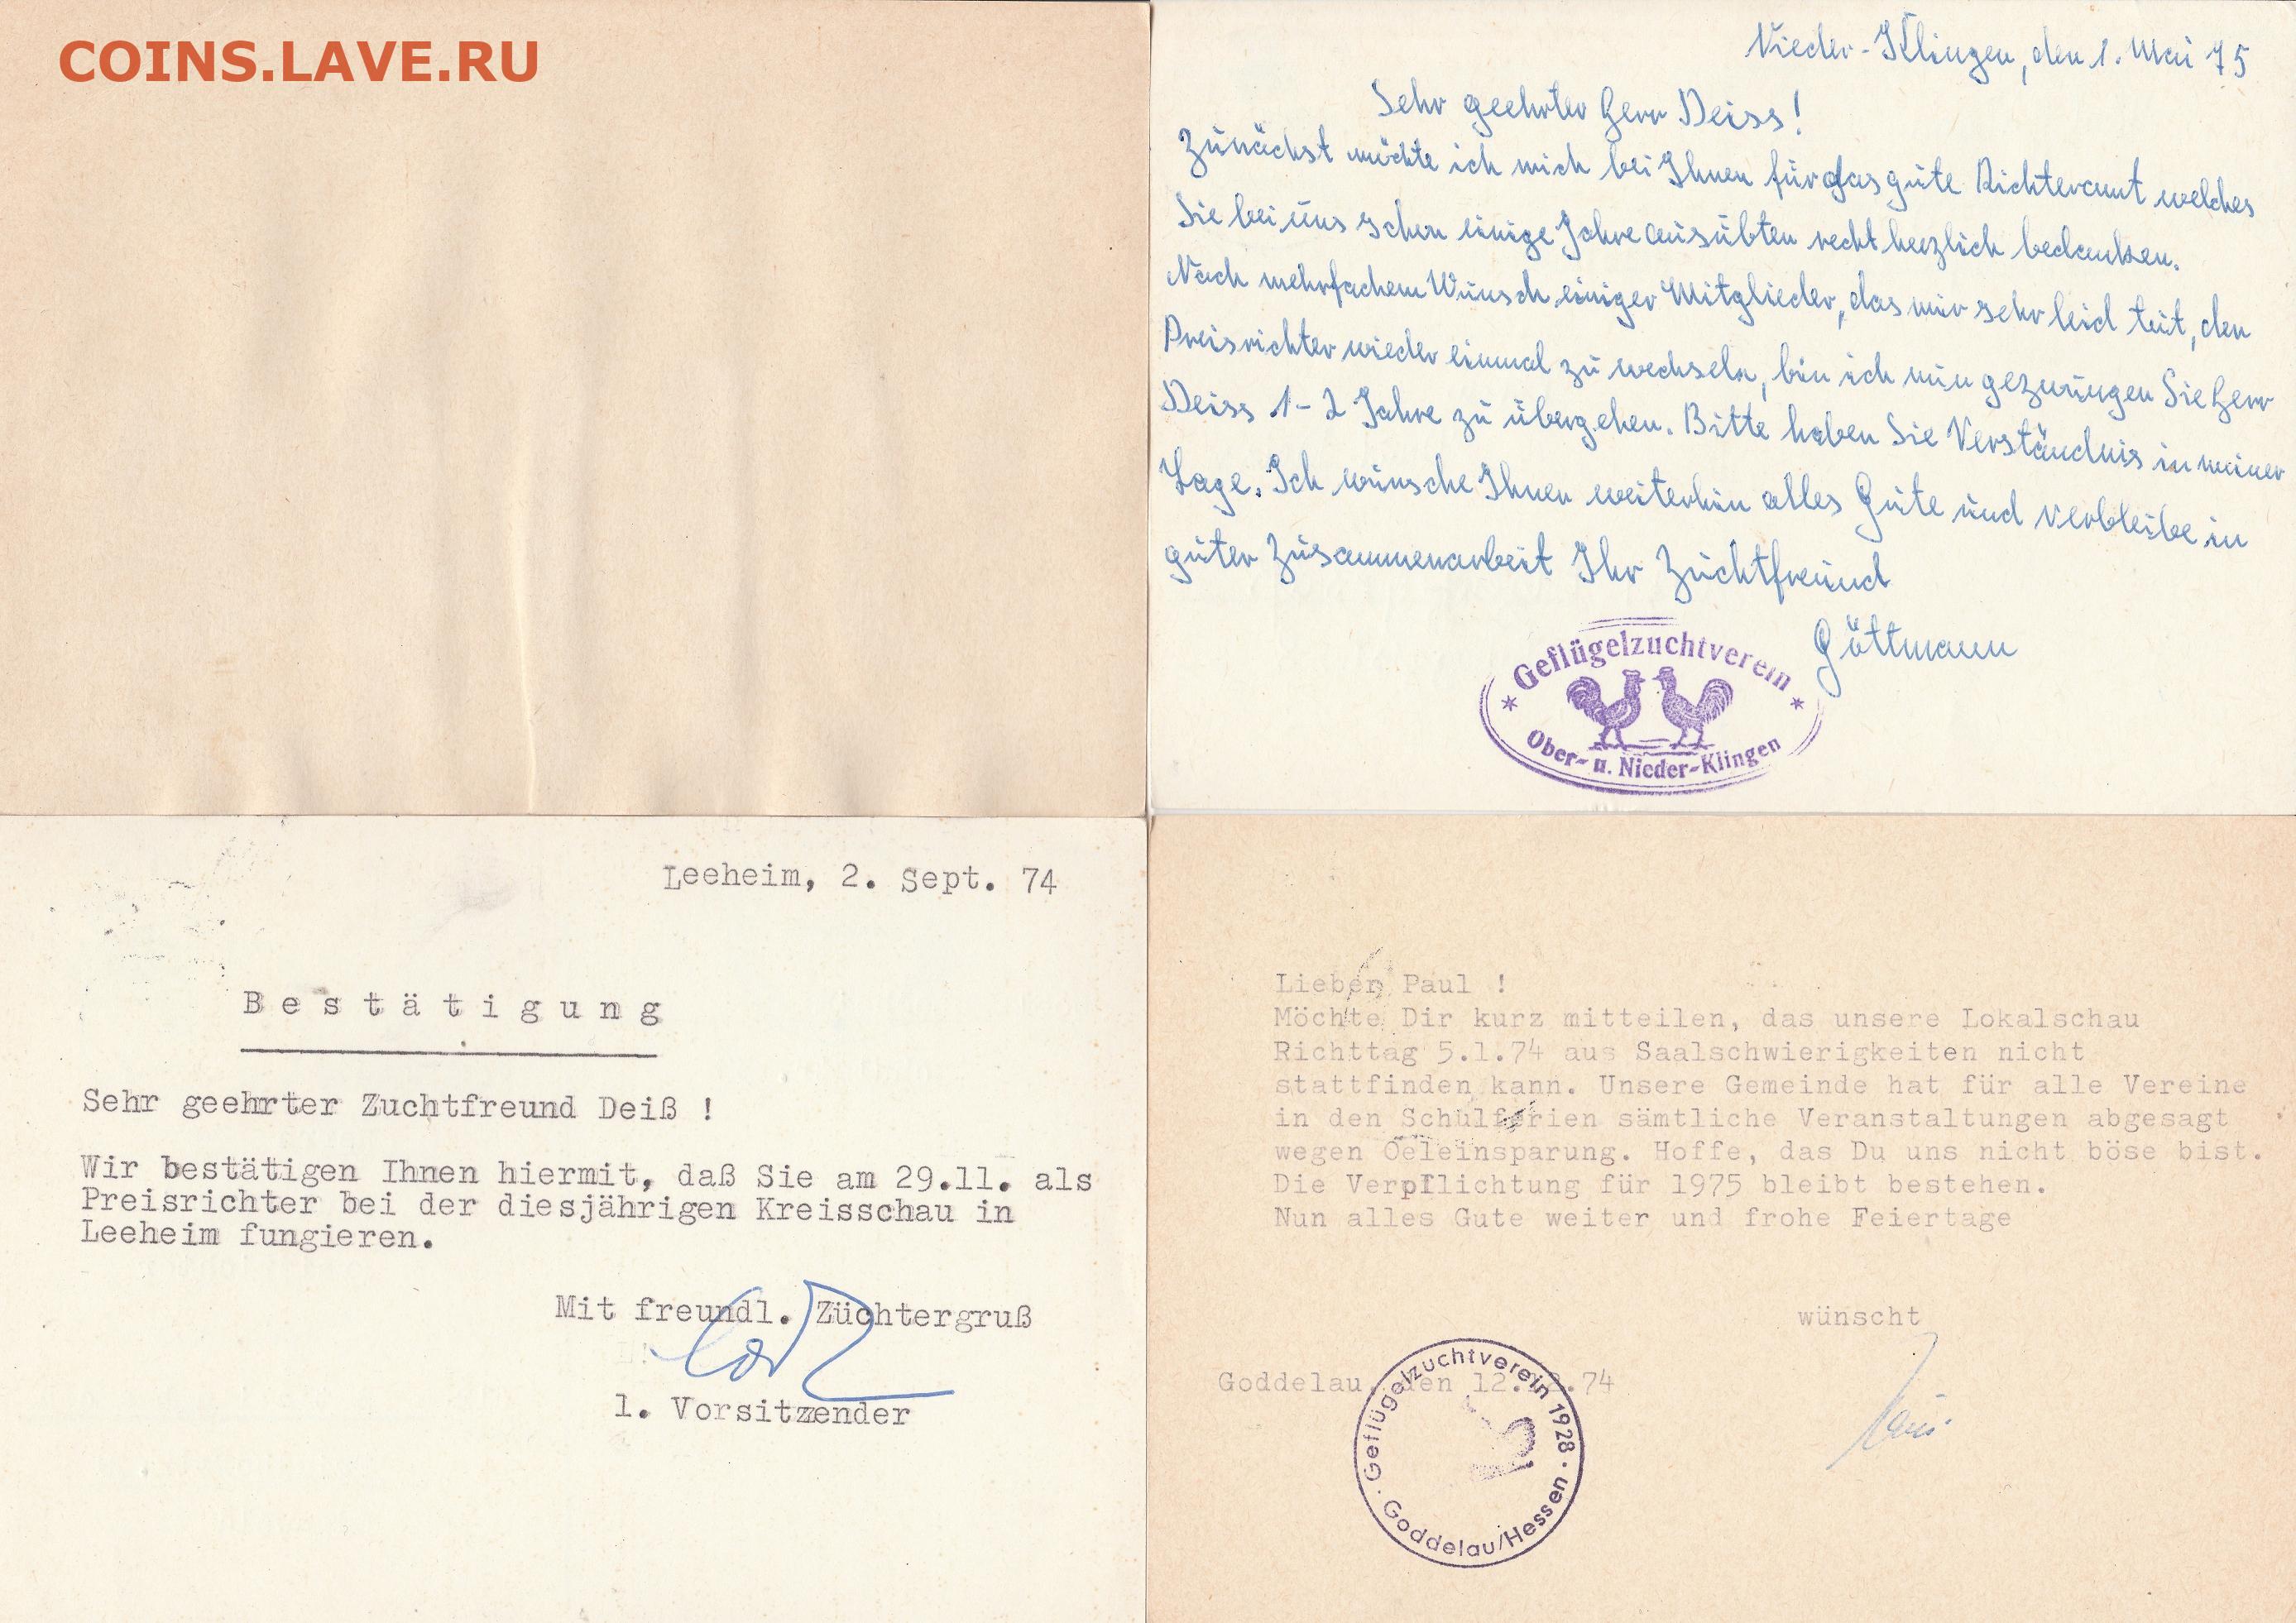 COINS.LAVE.RU
Nieder-Klingen, den 1. Mai 75
Sehr geehrter Herr Deiss!
Zunächst möchte ich mich bei Ihnen für das gute Richteramt welches
Sie bei uns schon einige Jahre ausübten recht herzlich bedanken.
Nach mehrfachem Wunsch einiger Mitglieder, das mir sehr leid tut, den
Preisrichter wieder einmal zu wechseln, bin ich nun gezwungen Sie Herr
Deiss 1-2 Jahre zu übergehen. Bitte haben Sie Verständnis in meiner
Lage. Ich wünsche Ihnen weiterhin alles Gute und verbleibe in
guter Zusammenarbeit Ihr Zuchtfreund
Göttmann
* Geflügelzuchtverein *
Ober- u. Nieder-Klingen
Leeheim, 2. Sept. 74
Bestätigung
Sehr geehrter Zuchtfreund Deiß !
Wir bestätigen Ihnen hiermit, daß Sie am 29.11. als
Preisrichter bei der diesjährigen Kreisschau in
Leeheim fungieren.
Mit freundl. Züchtergruß
1. Vorsitzender
Lieber Paul !
Möchte Dir kurz mitteilen, das unsere Lokalschau
Richttag 5.1.74 aus Saalschwierigkeiten nicht
stattfinden kann. Unsere Gemeinde hat für alle Vereine
in den Schulferien sämtliche Veranstaltungen abgesagt
wegen Oeleinsparung. Hoffe, das Du uns nicht böse bist.
Die Verpflichtung für 1975 bleibt bestehen.
Nun alles Gute weiter und frohe Feiertage
wünscht
Goddelau, den 12. .74
Geflügelzuchtverein 1928
Goddelau/Hessen